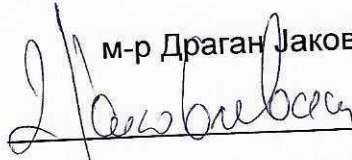 м-р Драган Јаков